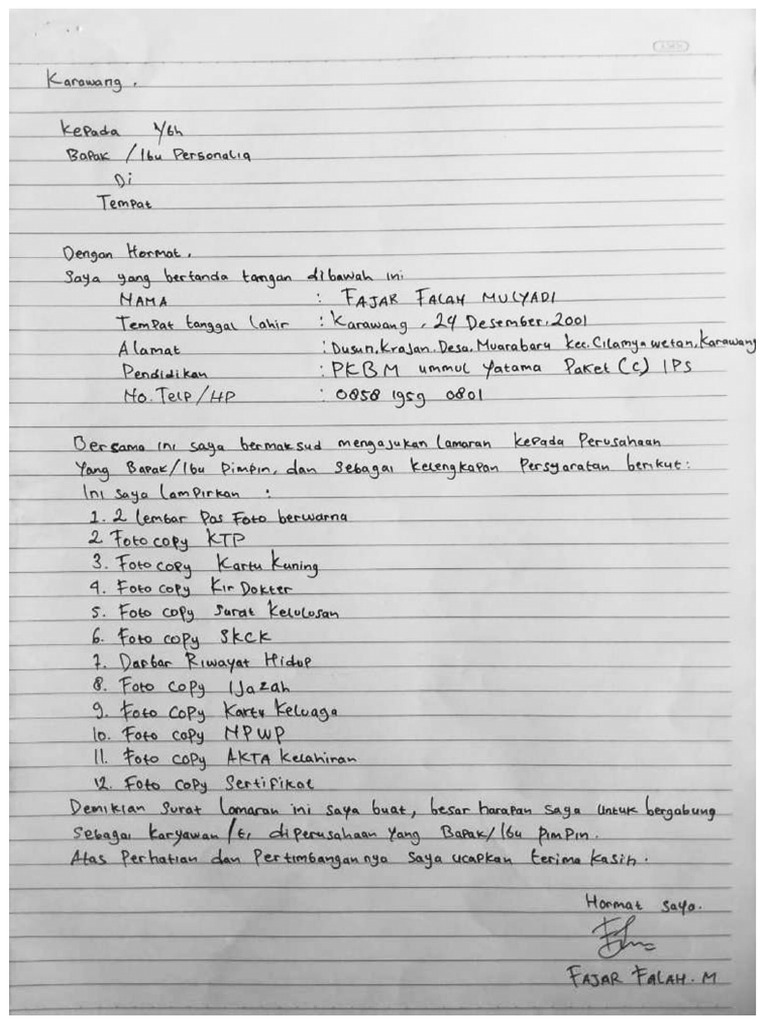 Karawang.
Kepada Yth
Bapak /Ibu Personalia
Di
Tempat
Dengan Hormat.
Saya yang bertanda tangan dibawah ini
NAMA : FAJAR FALAH MULYADI
Tempat tanggal lahir : Karawang, 24 Desember.2001
Alamat : Dusun.Krajan.Desa.Muarabaru kec.Cilamya wetan,Karawang
Pendidikan : PKBM ummul yatama Paket (c) IPS
No.Telp/HP : 0858 1959 0801
Bersama ini saya bermaksud mengajukan lamaran kepada Perusahaan
Yang Bapak/Ibu Pimpin, dan sebagai kelengkapan Persyaratan berikut:
Ini saya lampirkan :
1. 2 lembar Pas Foto berwarna
2 Foto copy KTP
3. Foto copy Kartu Kuning
4. Foto copy Kir Dokter
5. Foto copy Surat Kelulosan
6. Foto copy SKCK
7. Darbar Riwayat Hidup
8. Foto copy IJazah
9. Foto copy Kartu Keluaga
10. Foto copy NPWP
11. Foto copy AKTA Kelahiran
12. Foto copy Sertifikat
Demikian Surat lamaran ini saya buat, besar harapan saya untuk bergabung
Sebagai Karyawan/ti diperusahaan Yang Bapak/Ibu pimpin.
Atas Perhatian dan Pertimbangannya saya ucapkan terima kasih.
Hormat saya.
FAJAR FALAH.M